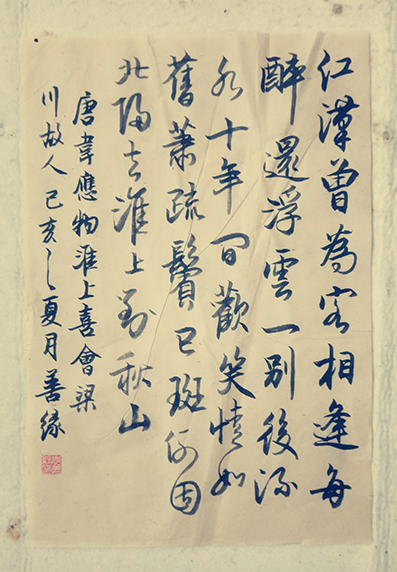 江漢曾為客相逢每
醉還浮雲一別後流
水十年間歡笑情如
舊蕭疏鬢已斑何因
北歸去淮上對秋山
唐韋應物淮上喜會梁
川故人己亥之夏月善緣